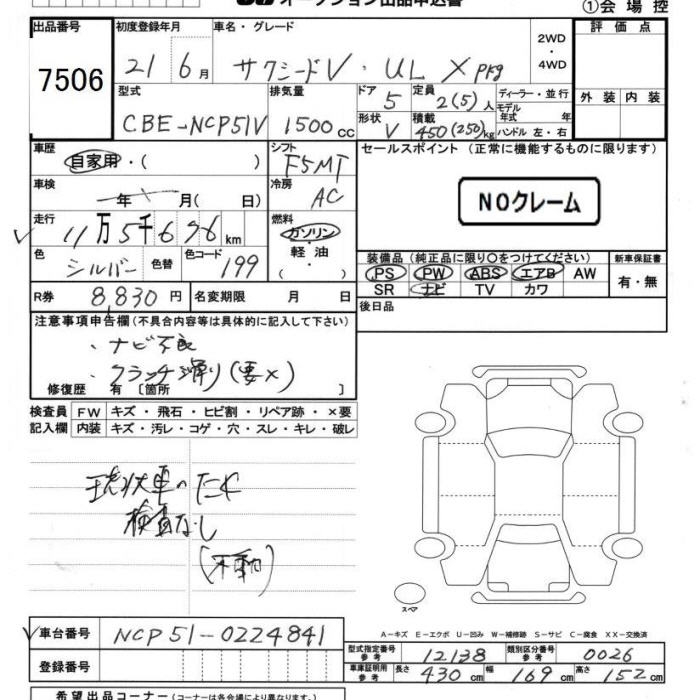 オークション出品申込書
①会場控
出品番号 7506
初度登録年月 21 6月
車名・グレード サクシードV・UL X pkg
2WD・4WD
評価点
外装 内装
型式 CBE-NCP51V
排気量 1500cc
ドア 5
形状 V
定員 2(5)人
積載 450(250)kg
ディーラー・並行
モデル年式 年
ハンドル 左・右
車歴 自家用・( )
シフト F5MT
車検 年 月( 日)
冷房 AC
走行 11万5千676km
燃料 ガソリン・軽油・( )
色 シルバー 色替 色コード 199
R券 8,830円 名変期限 月 日
セールスポイント(正常に機能するものに限ります)
NOクレーム
装備品(純正品に限り○をつけてください)
PS PW ABS エアB AW
SR ナビ TV カワ
新車保証書 有・無
後日品
注意事項申告欄(不具合内容等は具体的に記入して下さい)
・ナビ不良
・クラッチ滑り(要×)
修復歴 有[箇所 ]
検査員記入欄
FW キズ・飛石・ヒビ割・リペア跡・×要
内装 キズ・汚レ・コゲ・穴・スレ・キレ・破レ
現状車のため
検査なし
(不動)
スペア
A-キズ E-エクボ U-凹み W-補修跡 S-サビ C-腐食 XX-交換済
車台番号 NCP51-0224841
登録番号
型式指定番号参考 12138 類別区分番号参考 0026
車庫証明用参考 長さ 430cm 幅 169cm 高さ 152cm
希望出品コーナー(コーナーは各会場により異なります)